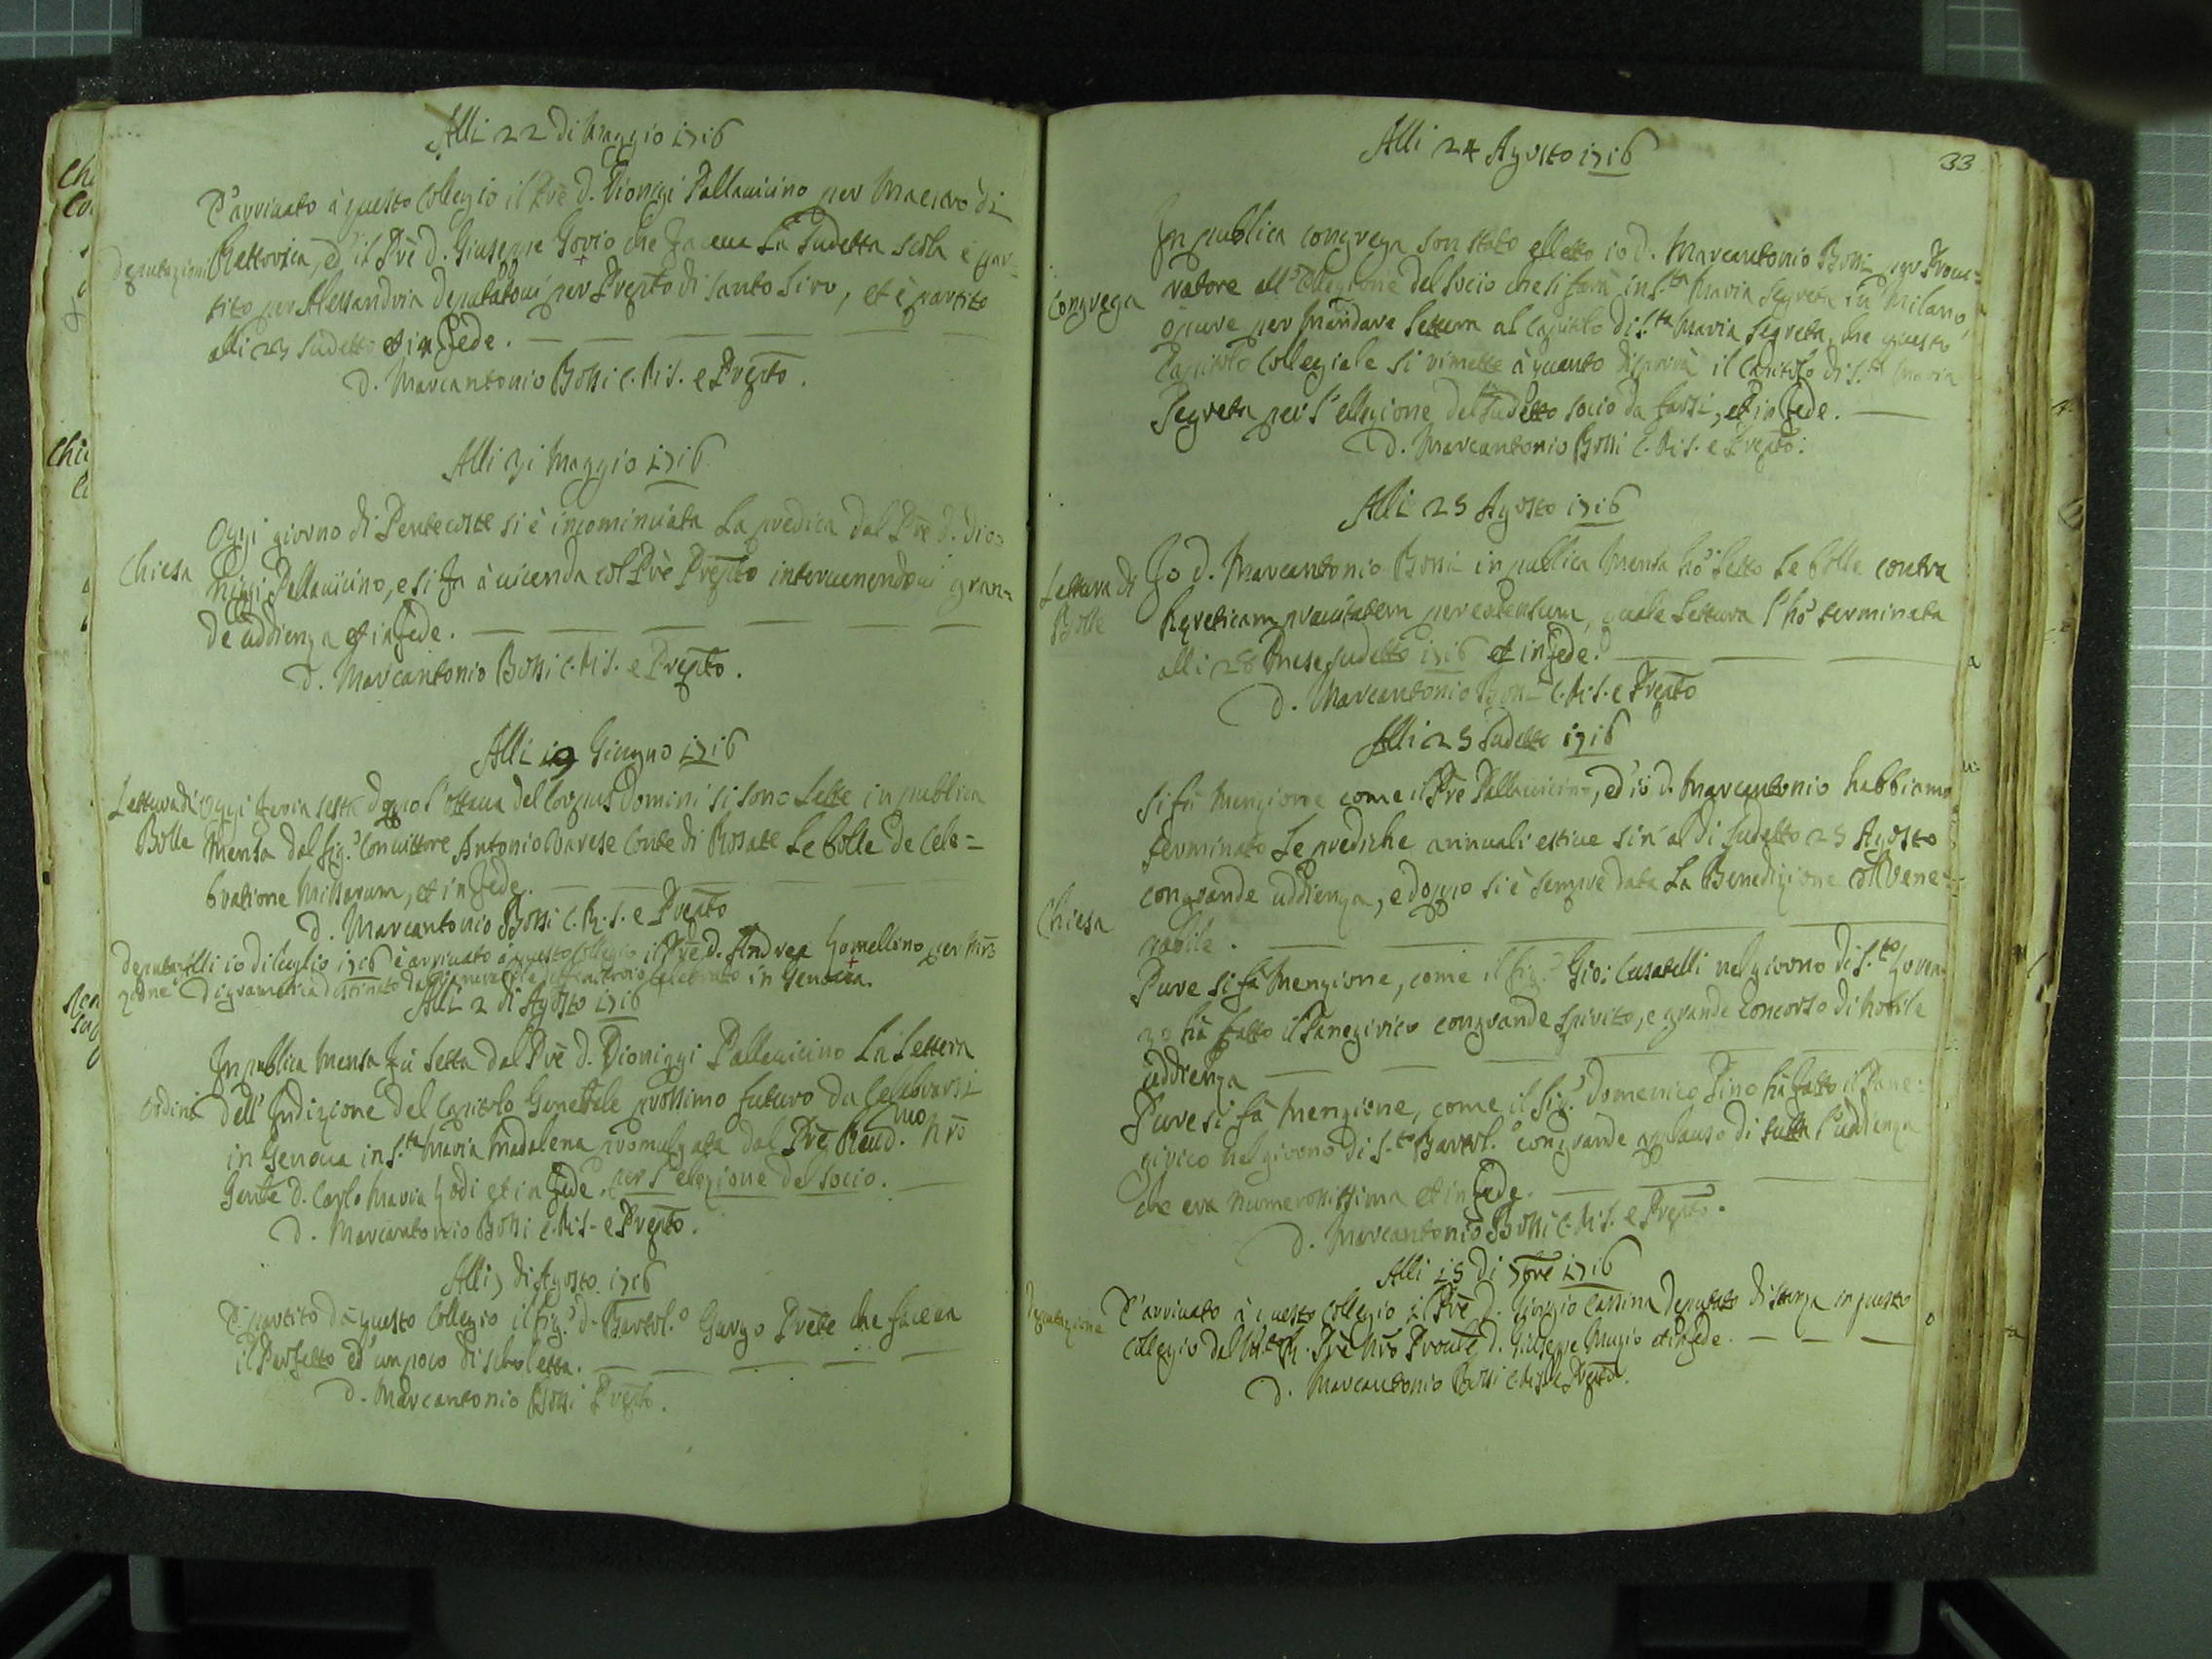 Alli 22 di Maggio 1716
E' arrivato à questo Collegio il Prè D. Dionigi Pallavicino per Maestro di
deputazioni Rettorica, ed il Prè D. Giuseppe Govio che faceva la sudetta scola è par=
tito per Alessandria deputatovi per Prepto di Santo Siro, et è partito
alli 23 sudetto et in fede.
D. Marcantonio Bossi C.R.S. e Prepto.
Alli 31 Maggio 1716
Oggi giorno di Pentecoste si è incominciata la predica dal Prè D. Dio=
Chiesa nigi Pallavicino, e si fa à vicenda col Prè Prepto intervenendovi gran=
de uddienza et in fede.
D. Marcantonio Bossi C.R.S. e Prepto.
Alli 19 Giugno 1716
Lettura di Oggi feria sesta doppo l'ottava del Corpus Domini si sono lette in publica
Bolle Mensa dal Sig.r Convittore Antonio Varese Conte di Rosate le bolle de cele=
bratione Missarum, et in fede.
D. Marcantonio Bossi C.R.S. e Prepto
deputa= Alli 10 di luglio 1716 è arrivato à questo Collegio il Prè D. Andrea Gomellino per Mrō
zione di gramatica destinato dal celebrato in Genova.
Alli 2 di Agosto 1716
In publica Mensa fù letta dal Prè D. Dioniggi Pallavicino la lettera
Ordini dell'Indizione del Capitolo Generale prossimo futuro da celebrarsi
in Genova in S.ta Maria Madalena promulgata dal Prè Revd.mo Nrō
Genle D. Carlo Maria Lodi et in fede. per l'elezione del socio.
D. Marcantonio Bossi C.R.S. e Prepto.
Alli 7 di Agosto 1716
E' partito dà questo Collegio il Sig.r D. Bartol.o Gargo Prète che faceva
il Perfetto ed' un poco di scholetta.
D. Marcantonio Bossi Prepto.
33
Alli 24 Agosto 1716
In publica congrega son stato elletto io D. Marcantonio Bossi per Procu=
Congrega ratore all'ellezione del socio che si farà in S.ta Maria Segreta in Milano,
ò pure per mandare lettera al Capitolo di S.ta Maria Segreta, che questo
Capitolo Collegiale si rimette à quanto disporrà il Capitolo di S.ta Maria
Segreta per l'ellezione del sudetto socio da farsi, et in fede.
D. Marcantonio Bossi C.R.S. e Prepto.
Alli 25 Agosto 1716
Lettura di Io D. Marcantonio Bossi in publica Mensa hò letto le bolle contra
Bolle hæreticam pravitatem per extensum, quale lettura l'hò terminata
alli 28 Mese sudetto 1716 et in fede.
D. Marcantonio Bossi C.R.S. e Prepto
Alli 25 sudetto 1716
Si fà menzione come il Prè Pallavicino, ed' io D. Marcantonio habbiamo
terminato le prediche annuali estive sin' al di sudetto 25 Agosto
con grande uddienza, e doppo si è sempre data la Benedizione col Vene=
Chiesa rabile.
Pure si fà menzione, come il Sig.r Gio: Casatelli nel giorno di S.to Loren=
zo hà fatto il Panegirico con grande spirito, e grande concorso di nobile
uddienza
Pure si fà menzione, come il Sig.r Domenico Pino hà fatto il Pane=
girico nel giorno di S.to Bartol.o con grande applauso di tutta l'uddienza
che era numerosissima et in fede.
D. Marcantonio Bossi C.R.S. e Prepto.
Alli 15 di 7bre 1716
Deputazione E' arrivato à questo Collegio il Prè D. Giorgio Cassina deputato di stanza in questo
Collegio dal M.to R. Prè Nrō Provle D. Giuseppe Mugio et in fede.
D. Marcantonio Bossi C.R.S. e Prepto.